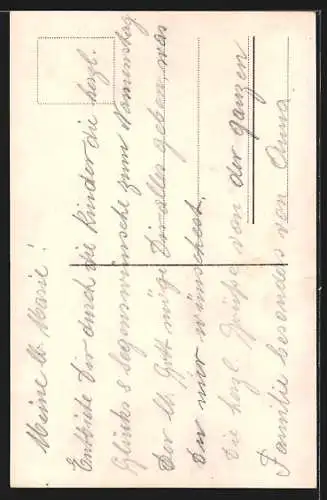 Meine lb. Marie!
Entbiete Dir durch die Kinder die herzl.
Glücks & Segenswünsche zum Namenstag
Der lb. Gott möge Dir alles geben, was
Du nur wünschest.
Die herzl. Grüße von der ganzen
Familie besonders von Anna.